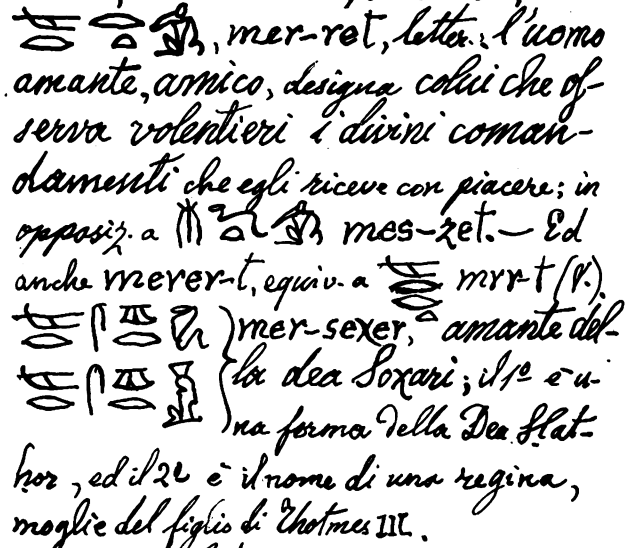 , mer-ret, letter.: l'uomo
amante, amico, designa colui che os-
serva volentieri i divini coman-
damenti che egli riceve con piacere; in
opposiz. a mes-zet. — Ed
anche merer-t, equiv. a mrr-t (V.)
) mer-seχer, amante del-
la dea Soχari; il 1º è u-
na forma della Dea Hat-
hor, ed il 2º è il nome di una regina,
moglie del figlio di Thotmes III.